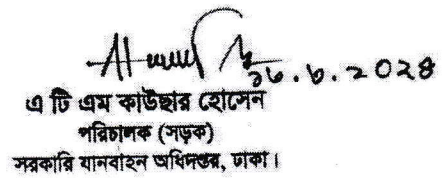 এ টি এম কাউছার হোসেন
পরিচালক (সড়ক)
সরকারি যানবাহন অধিদপ্তর, ঢাকা।